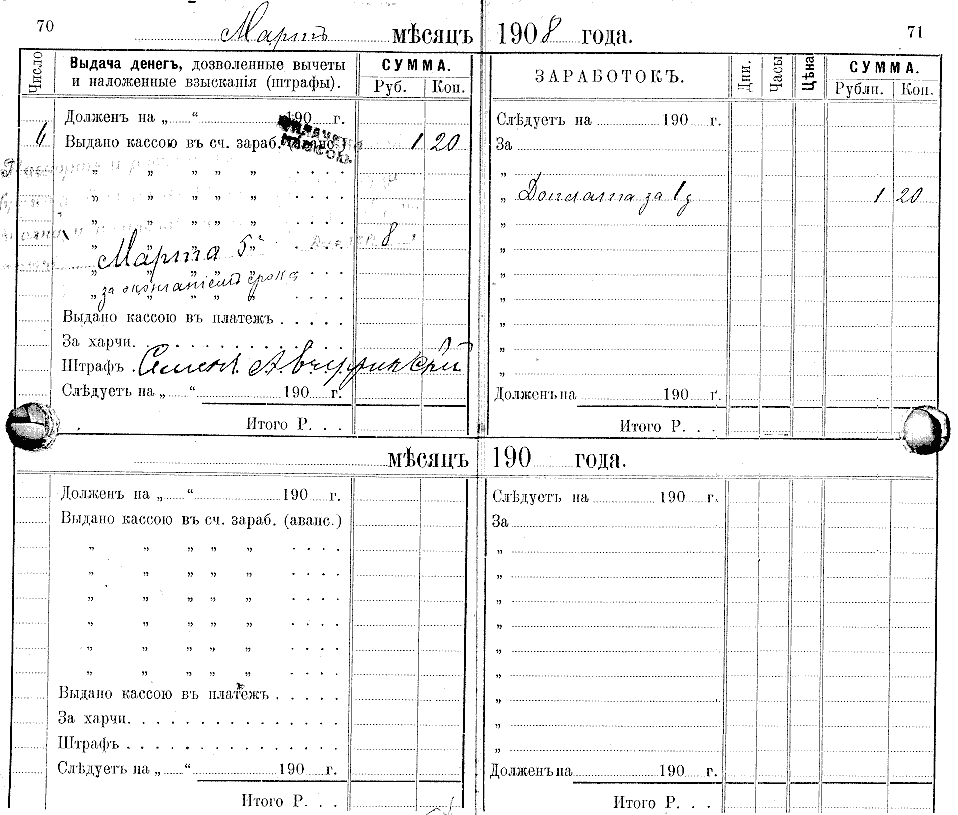 70
Мартъ мѣсяцъ 1908 года.
71
Число
Выдача денегъ, дозволенные вычеты
и наложенные взысканія (штрафы).
СУММА.
Руб. Коп.
ЗАРАБОТОКЪ.
Дни. Часы Цѣна
СУММА.
Рубли. Коп.
Долженъ на „ “ 190 г.
Слѣдуетъ на 190 г.
Выдано кассою въ сч. зараб. (аванс.) 1 20
За
„ „ „ „ „ . . . .
„
„ „ „ „ „ . . . .
„ Доплата за 1 д 1 20
„ „ „ „ „ . . . .
„
„ Марта 5 „ . . . . 8
„
„ „ „ „ „ . . . .
„
„ за окончаніемъ срока . . . .
„
Выдано кассою въ платежъ . . . . .
„
За харчи. . . . . . . . . . . . .
„
Штрафъ . Семенъ
„
Слѣдуетъ на „ “ 190 г.
Долженъ на 190 г.
Итого Р. . .
Итого Р. . .
мѣсяцъ 190 года.
Долженъ на „ “ 190 г.
Слѣдуетъ на 190 г.
Выдано кассою въ сч. зараб. (аванс.)
За
„ „ „ „ „ . . . .
„
„ „ „ „ „ . . . .
„
„ „ „ „ „ . . . .
„
„ „ „ „ „ . . . .
„
„ „ „ „ „ . . . .
„
„ „ „ „ „ . . . .
„
Выдано кассою въ платежъ . . . . .
„
За харчи. . . . . . . . . . . . .
„
Штрафъ . . . . . . . . . . . . .
„
Слѣдуетъ на „ “ 190 г.
Долженъ на 190 г.
Итого Р. . .
Итого Р. . .